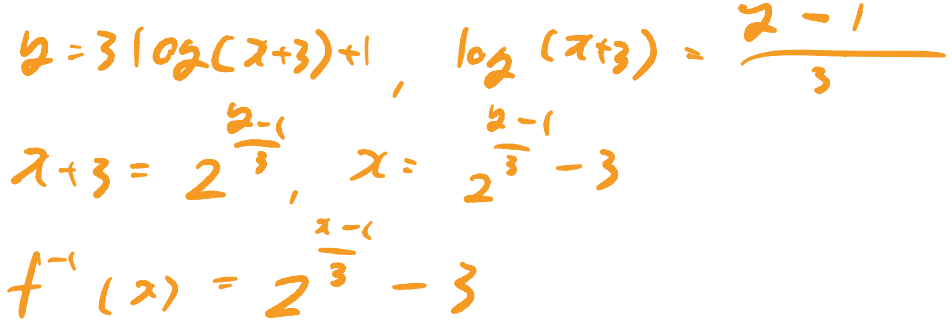 y = 3 log(x+3)+1, log₂(x+3) = \frac{y-1}{3}
x+3 = 2^{\frac{y-1}{3}}, x = 2^{\frac{y-1}{3}} - 3
f^{-1}(x) = 2^{\frac{x-1}{3}} - 3